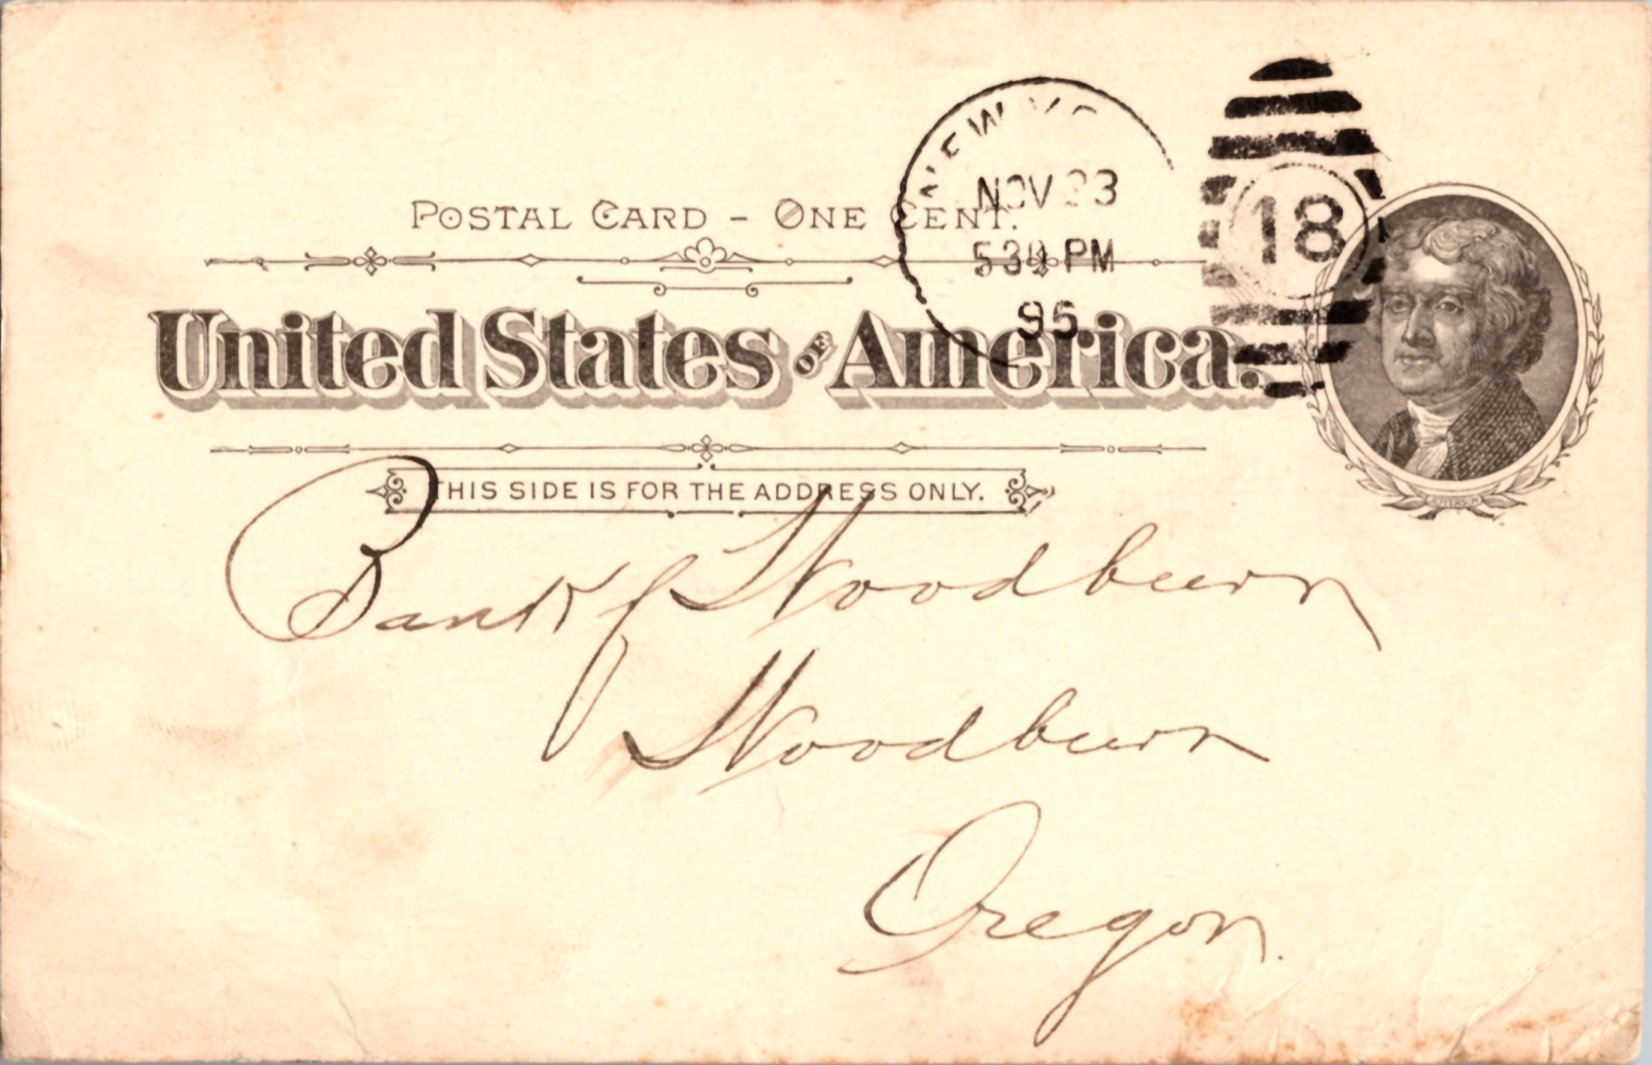 NEW YO
NOV 23
530 PM
95
18
POSTAL CARD - ONE CENT.
United States OF America.
JEFFERSON
THIS SIDE IS FOR THE ADDRESS ONLY.
Bank of Woodburn
Woodburn
Oregon.